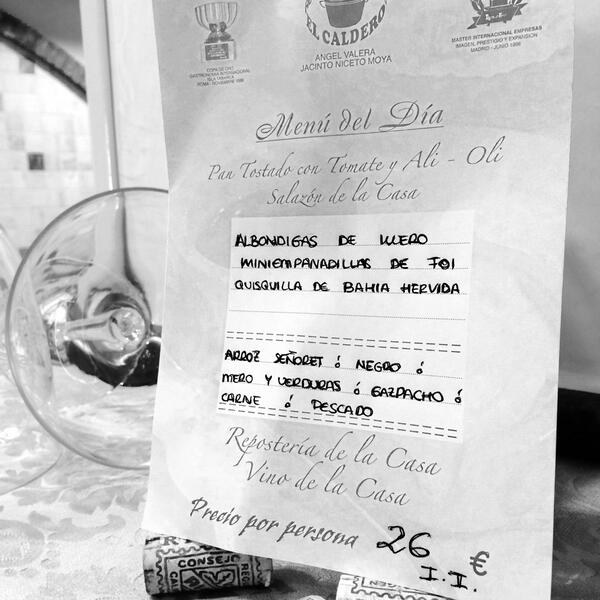 EL CALDERO
ANGEL VALERA
JACINTO NICETO MOYA
COPA DE ORO
GASTRONOMIA INTERNACIONAL
ISLA TABARCA
ROMA - NOVIEMBRE 1996
MASTER INTERNACIONAL EMPRESAS
IMAGEN, PRESTIGIO Y EXPANSION
MADRID - JUNIO 1998
Menú del Día
Pan Tostado con Tomate y Ali - Oli
Salazón de la Casa
ALBONDIGAS DE MERO
MINIEMPANADILLAS DE FOI
QUISQUILLA DE BAHIA HERVIDA
ARROZ SEÑORET ó NEGRO ó
MERO Y VERDURAS ó GAZPACHO ó
CARNE ó PESCADO
Repostería de la Casa
Vino de la Casa
Precio por persona 26 €
I.I.
CONSEJO